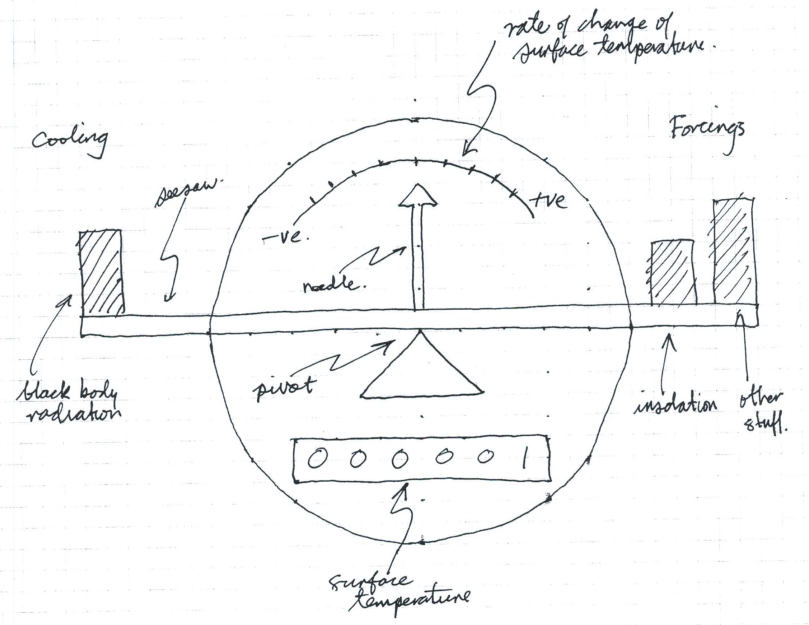 rate of change of
surface temperature.
Cooling
Forcings
seesaw.
+ve
-ve.
needle.
pivot
black body
radiation
insolation
other
stuff.
0 0 0 0 0 1
surface
temperature